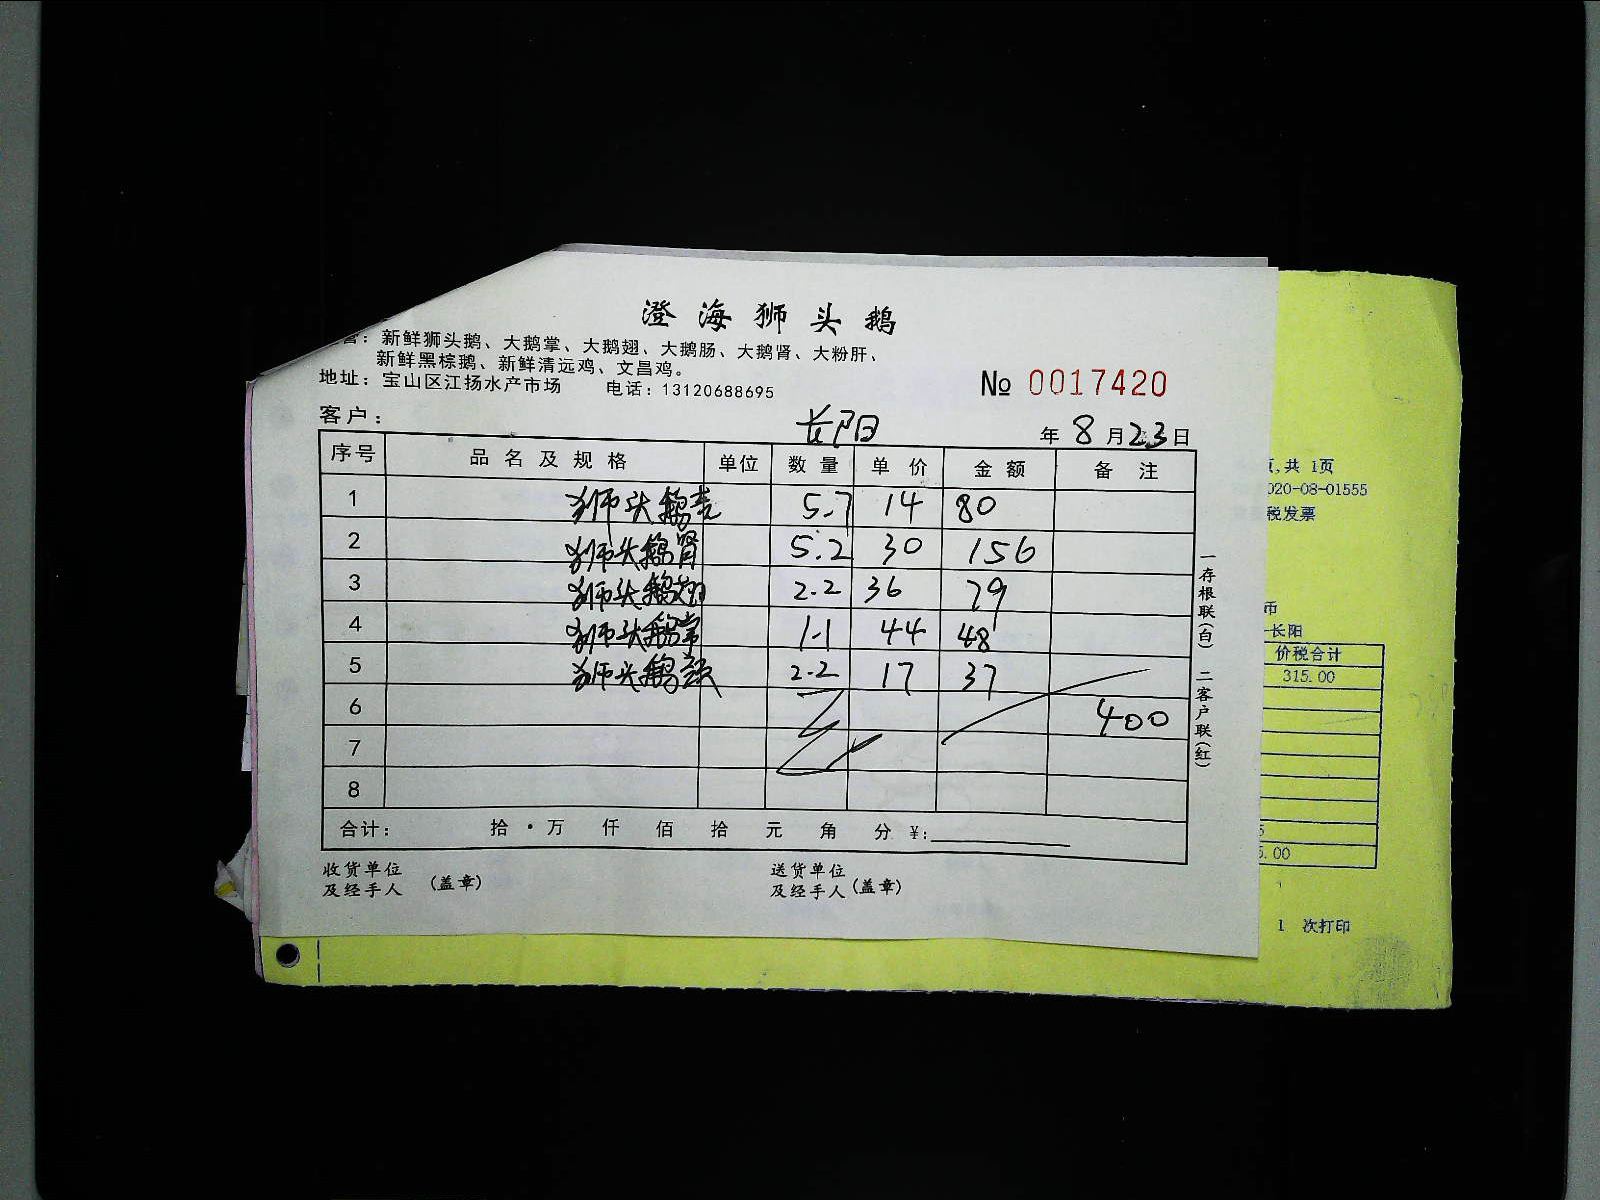 澄海狮头鹅
营：新鲜狮头鹅、大鹅掌、大鹅翅、大鹅肠、大鹅肾、大粉肝、
新鲜黑棕鹅、新鲜清远鸡、文昌鸡。
地址：宝山区江扬水产市场 电话：13120688695
№ 0017420
客户： 长阳 年 8 月 23 日
序号 品名及规格 单位 数量 单价 金额 备注
1 狮头鹅壳 5.7 14 80
2 狮头鹅肾 5.2 30 156
3 狮头鹅翅 2.2 36 79
4 狮头鹅掌 1.1 44 48
5 狮头鹅颈 2.2 17 37
6 400
7
8
合计： 拾·万 仟 佰 拾 元 角 分 ¥:
收货单位
及经手人 (盖章)
送货单位
及经手人 (盖章)
一存根联(白) 二客户联(红)
页,共 1页
020-08-01555
税发票
币
长阳
价税合计
315.00
5.00
1 次打印